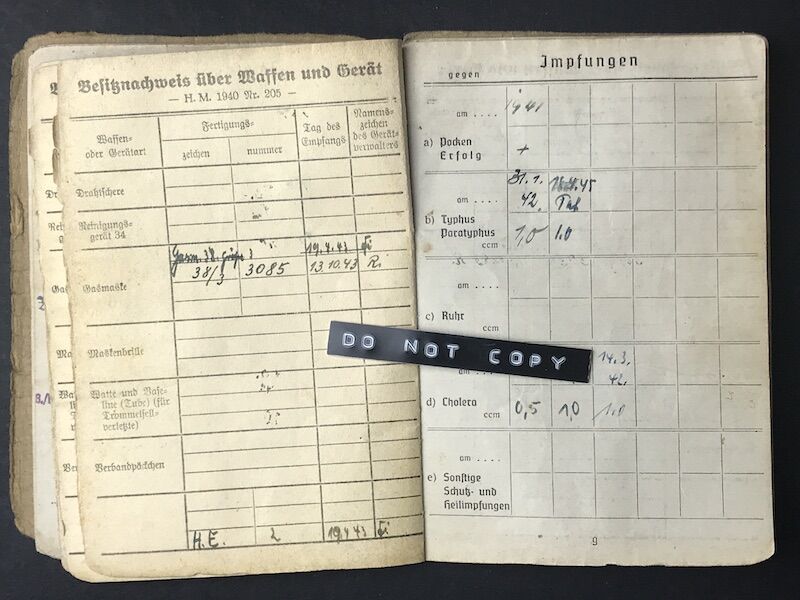 Besitznachweis über Waffen und Gerät
— H. M. 1940 Nr. 205 —
Waffen-
oder Gerätart
Fertigungs-
zeichen
nummer
Tag des
Empfangs
Namens-
zeichen
des Gerät-
verwalters
Drahtschere
Reinigungs-
gerät 34
19.4.43
38/3 3085 13.10.43 R.
Gasmaske
Maskenbrille
Watte und Vase-
line (Tube) (für
Trommelfell-
verletzte)
Verbandpäckchen
H.E. 2 19.4.43
Impfungen
gegen
am . . . . 1941
a) Pocken
Erfolg +
31.1.
am . . . . 42.
b) Typhus
Paratyphus
ccm 1,0 1.0
am . . . .
c) Ruhr
ccm
DO NOT COPY
14.3.
am 42.
d) Cholera
ccm 0,5 1,0 1.0
am . . . .
e) Sonstige
Schutz- und
Heilimpfungen
9